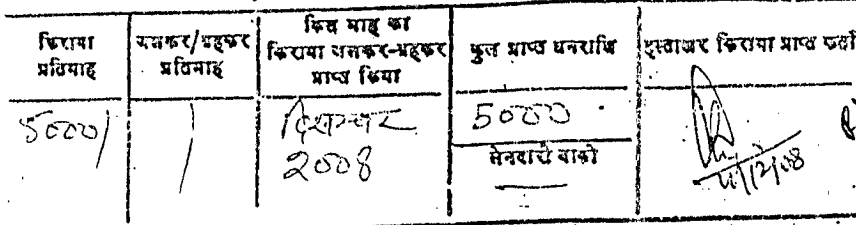 किराया प्रतिमाह
जलकर/गृहकर प्रतिमाह
किस माह का किराया जलकर-गृहकर प्राप्त किया
कुल प्राप्त धनराशि
हस्ताक्षर किराया प्राप्त कर्ता
5000/
दिसम्बर
2008
5000
लेनदारी बाकी